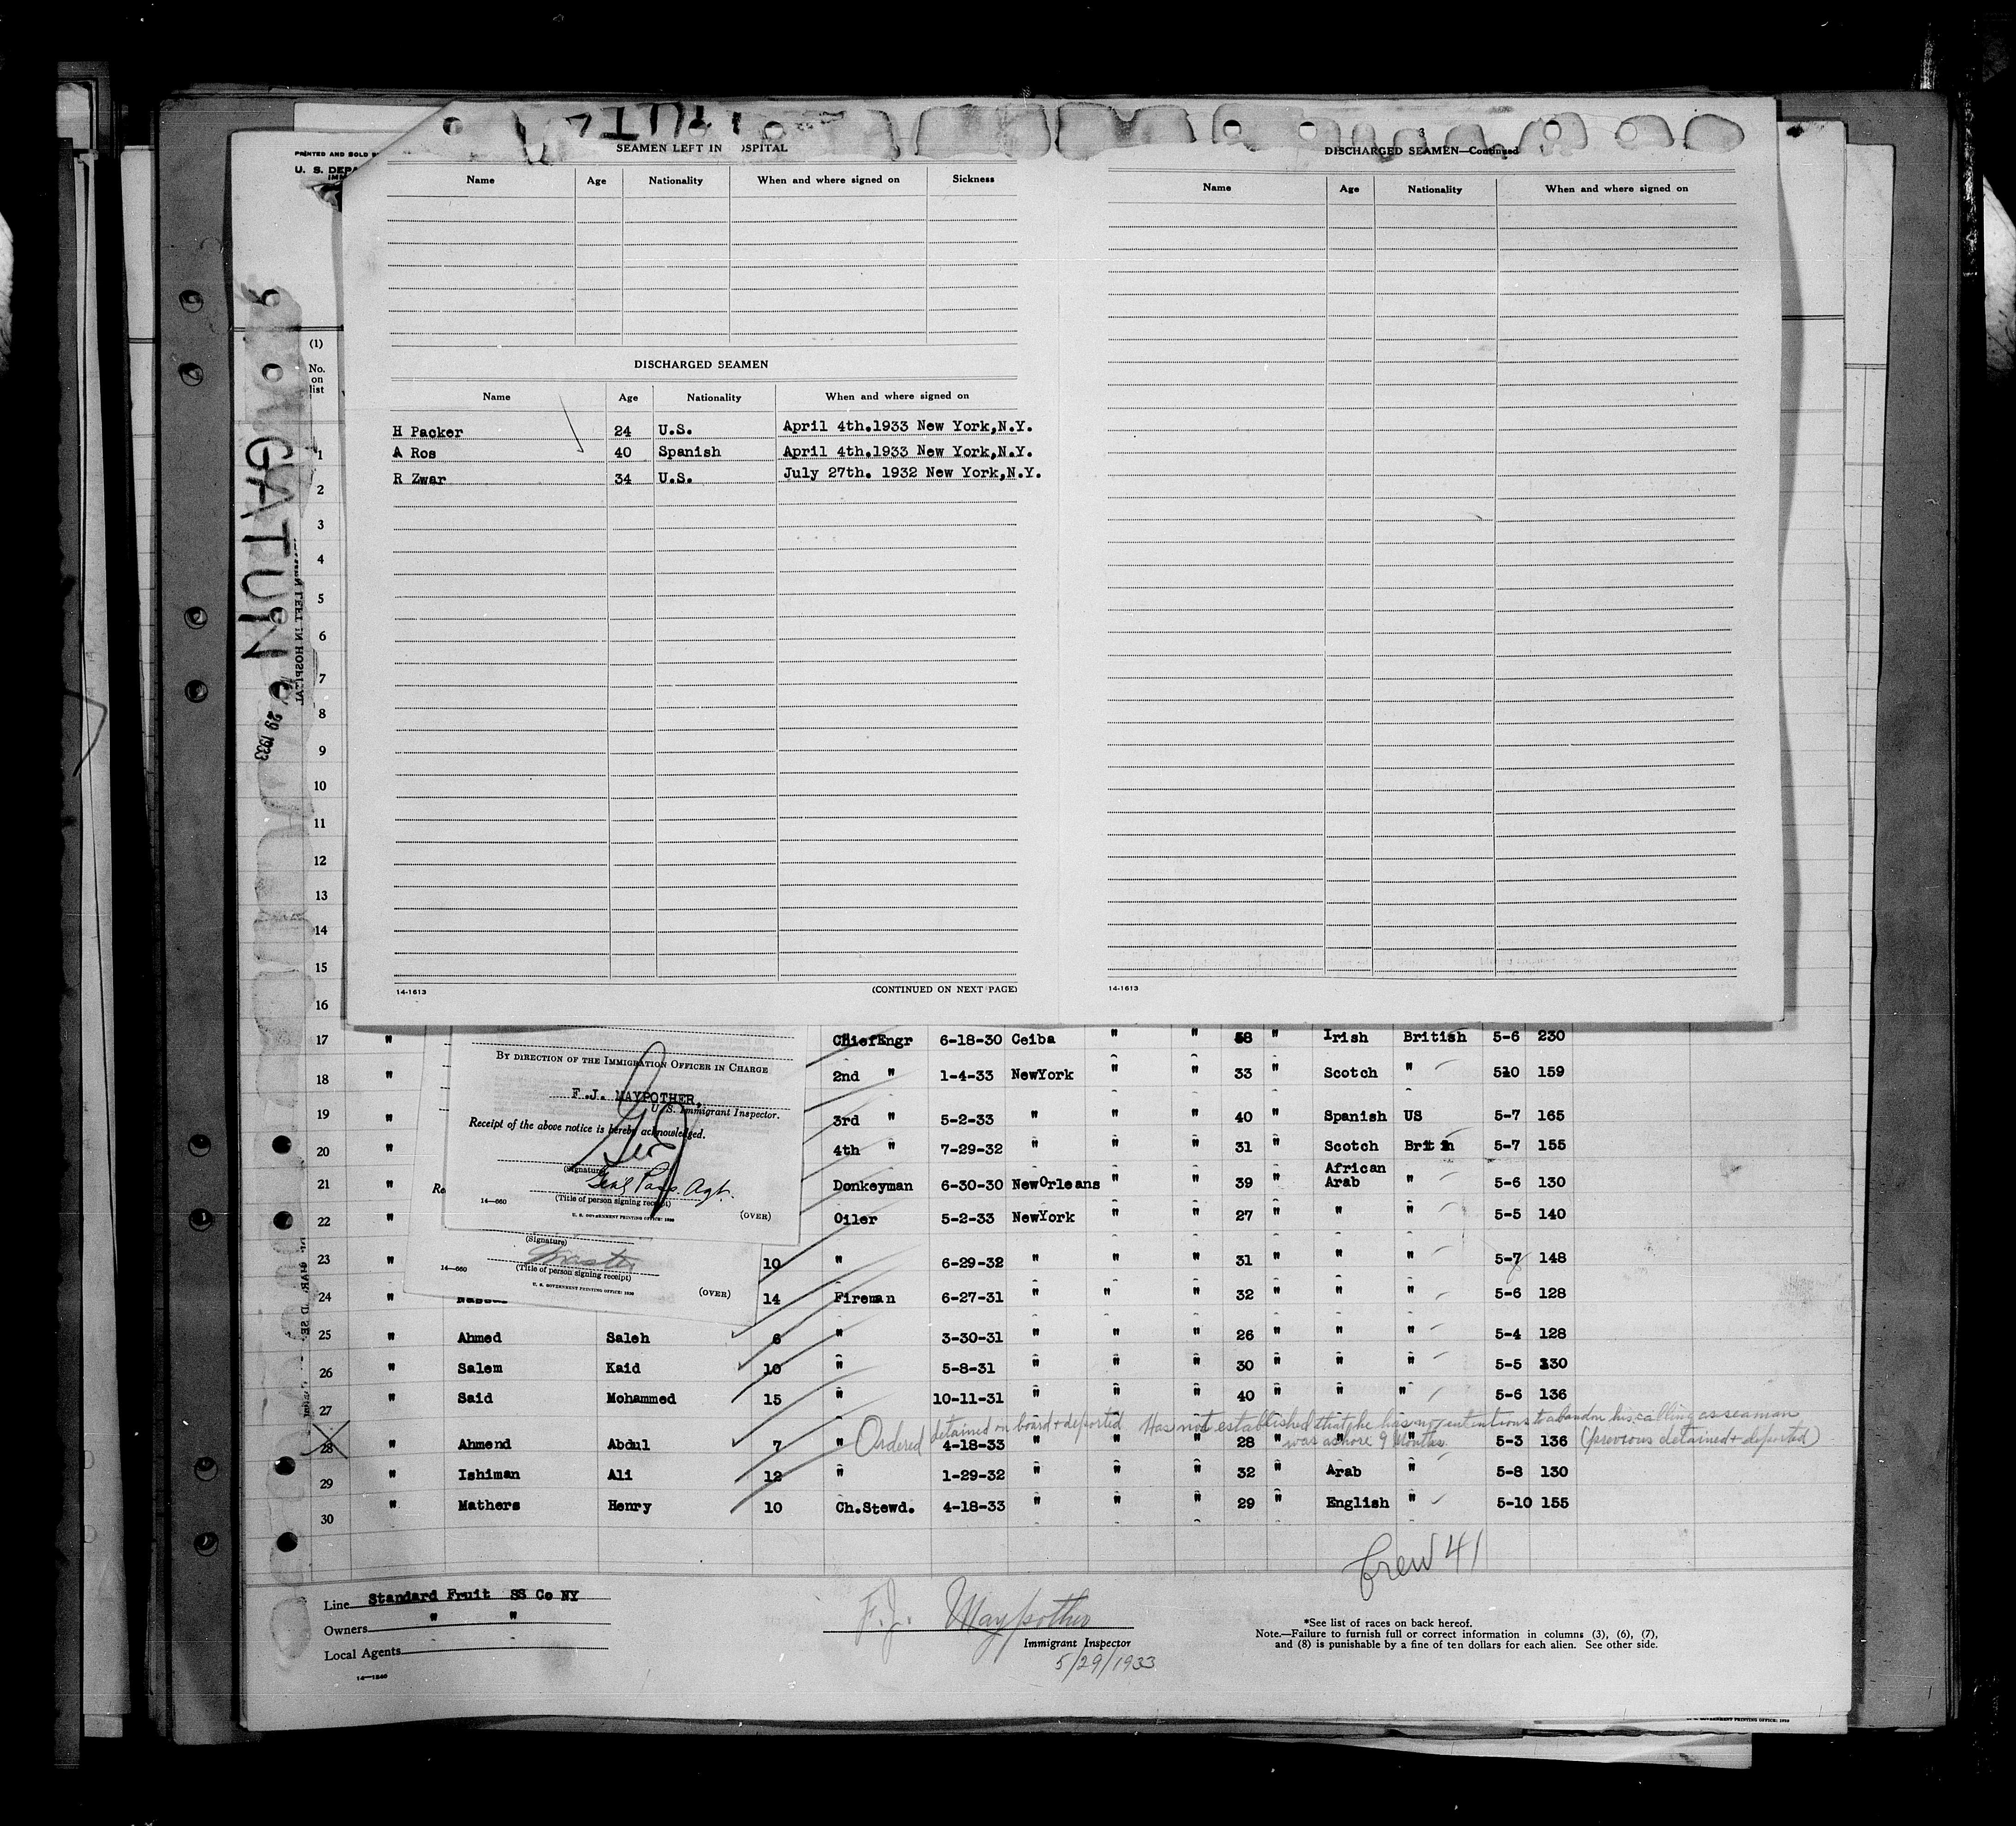 SEAMEN LEFT IN OSPITAL
Name Age Nationality When and where signed on Sickness
DISCHARGED SEAMEN
Name Age Nationality When and where signed on
H Packer 24 U.S. April 4th.1933 New York,N.Y.
A Ros 40 Spanish April 4th.1933 New York,N.Y.
R Zwar 34 U.S. July 27th. 1932 New York,N.Y.
14-1613 (CONTINUED ON NEXT PAGE)
DISCHARGED SEAMEN—Continued
Name Age Nationality When and where signed on
14-1613
PRINTED AND SOLD B
U. S. DEPA
IMM
GATUN
29 1933
(1)
No.
on
list
1
2
3
4
5
6
7
8
9
10
11
12
13
14
15
16
17 " ChiefEngr 6-18-30 Ceiba " " 58 " Irish British 5-6 230
18 " 2nd " 1-4-33 NewYork " " 33 " Scotch " 510 159
19 " 3rd " 5-2-33 " " " 40 " Spanish US 5-7 165
20 " 4th " 7-29-32 " " " 31 " Scotch 5-7 155
African
21 " Donkeyman 6-30-30 NewOrleans " " 39 " Arab " 5-6 130
22 " Oiler 5-2-33 NewYork " " 27 " " " 5-5 140
23 " 10 " 6-29-32 " " " 31 " " " 5-7 148
24 " 14 Fireman 6-27-31 " " " 32 " " " 5-6 128
25 " Ahmed Saleh 6 " 3-30-31 " " " 26 " " " 5-4 128
26 " Salem Kaid 10 " 5-8-31 " " " 30 " " " 5-5 130
27 " Said Mohammed 15 " 10-11-31 " " " 40 " " " 5-6 136
Ordered detained on board & deported Has not established that he has no intentions to abandon his calling as seaman
28 " Ahmend Abdul 7 " 4-18-33 " " " 28 " " " 5-3 136
was ashore 9 Months (previous detained & deported)
29 " Ishiman Ali 12 " 1-29-32 " " " 32 " Arab " 5-8 130
30 " Mathers Henry 10 Ch.Stewd. 4-18-33 " " " 29 " English " 5-10 155
BY DIRECTION OF THE IMMIGRATION OFFICER IN CHARGE
F.J. MAYPOTHER,
U. S. Immigrant Inspector.
Receipt of the above notice is hereby acknowledged.
(Signature)
Genl Pass. Agt.
(Title of person signing receipt)
14—660 (OVER)
U. S. GOVERNMENT PRINTING OFFICE: 1930
Re
(Signature)
Master
(Title of person signing receipt)
14—660 (OVER)
U. S. GOVERNMENT PRINTING OFFICE: 1930
Crew 41
Line Standard Fruit SS Co NY
Owners " "
Local Agents
F.J. Maypother
Immigrant Inspector
5/29/1933
*See list of races on back hereof.
Note.—Failure to furnish full or correct information in columns (3), (6), (7),
and (8) is punishable by a fine of ten dollars for each alien. See other side.
GOVERNMENT PRINTING OFFICE: